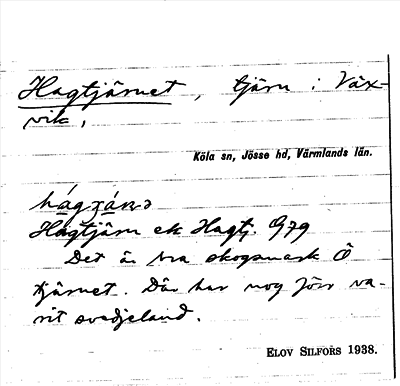 Hagtjärnet, tjärn i Väx-
vik,
Köla sn, Jösse hd, Värmlands län.
hágʒánə
Hagtjärn ek Hagtj. G79
Det är bra skogsmark Ö
tjärnet. Där har nog förr va-
rit svedjeland.
ELOV SILFORS 1938.